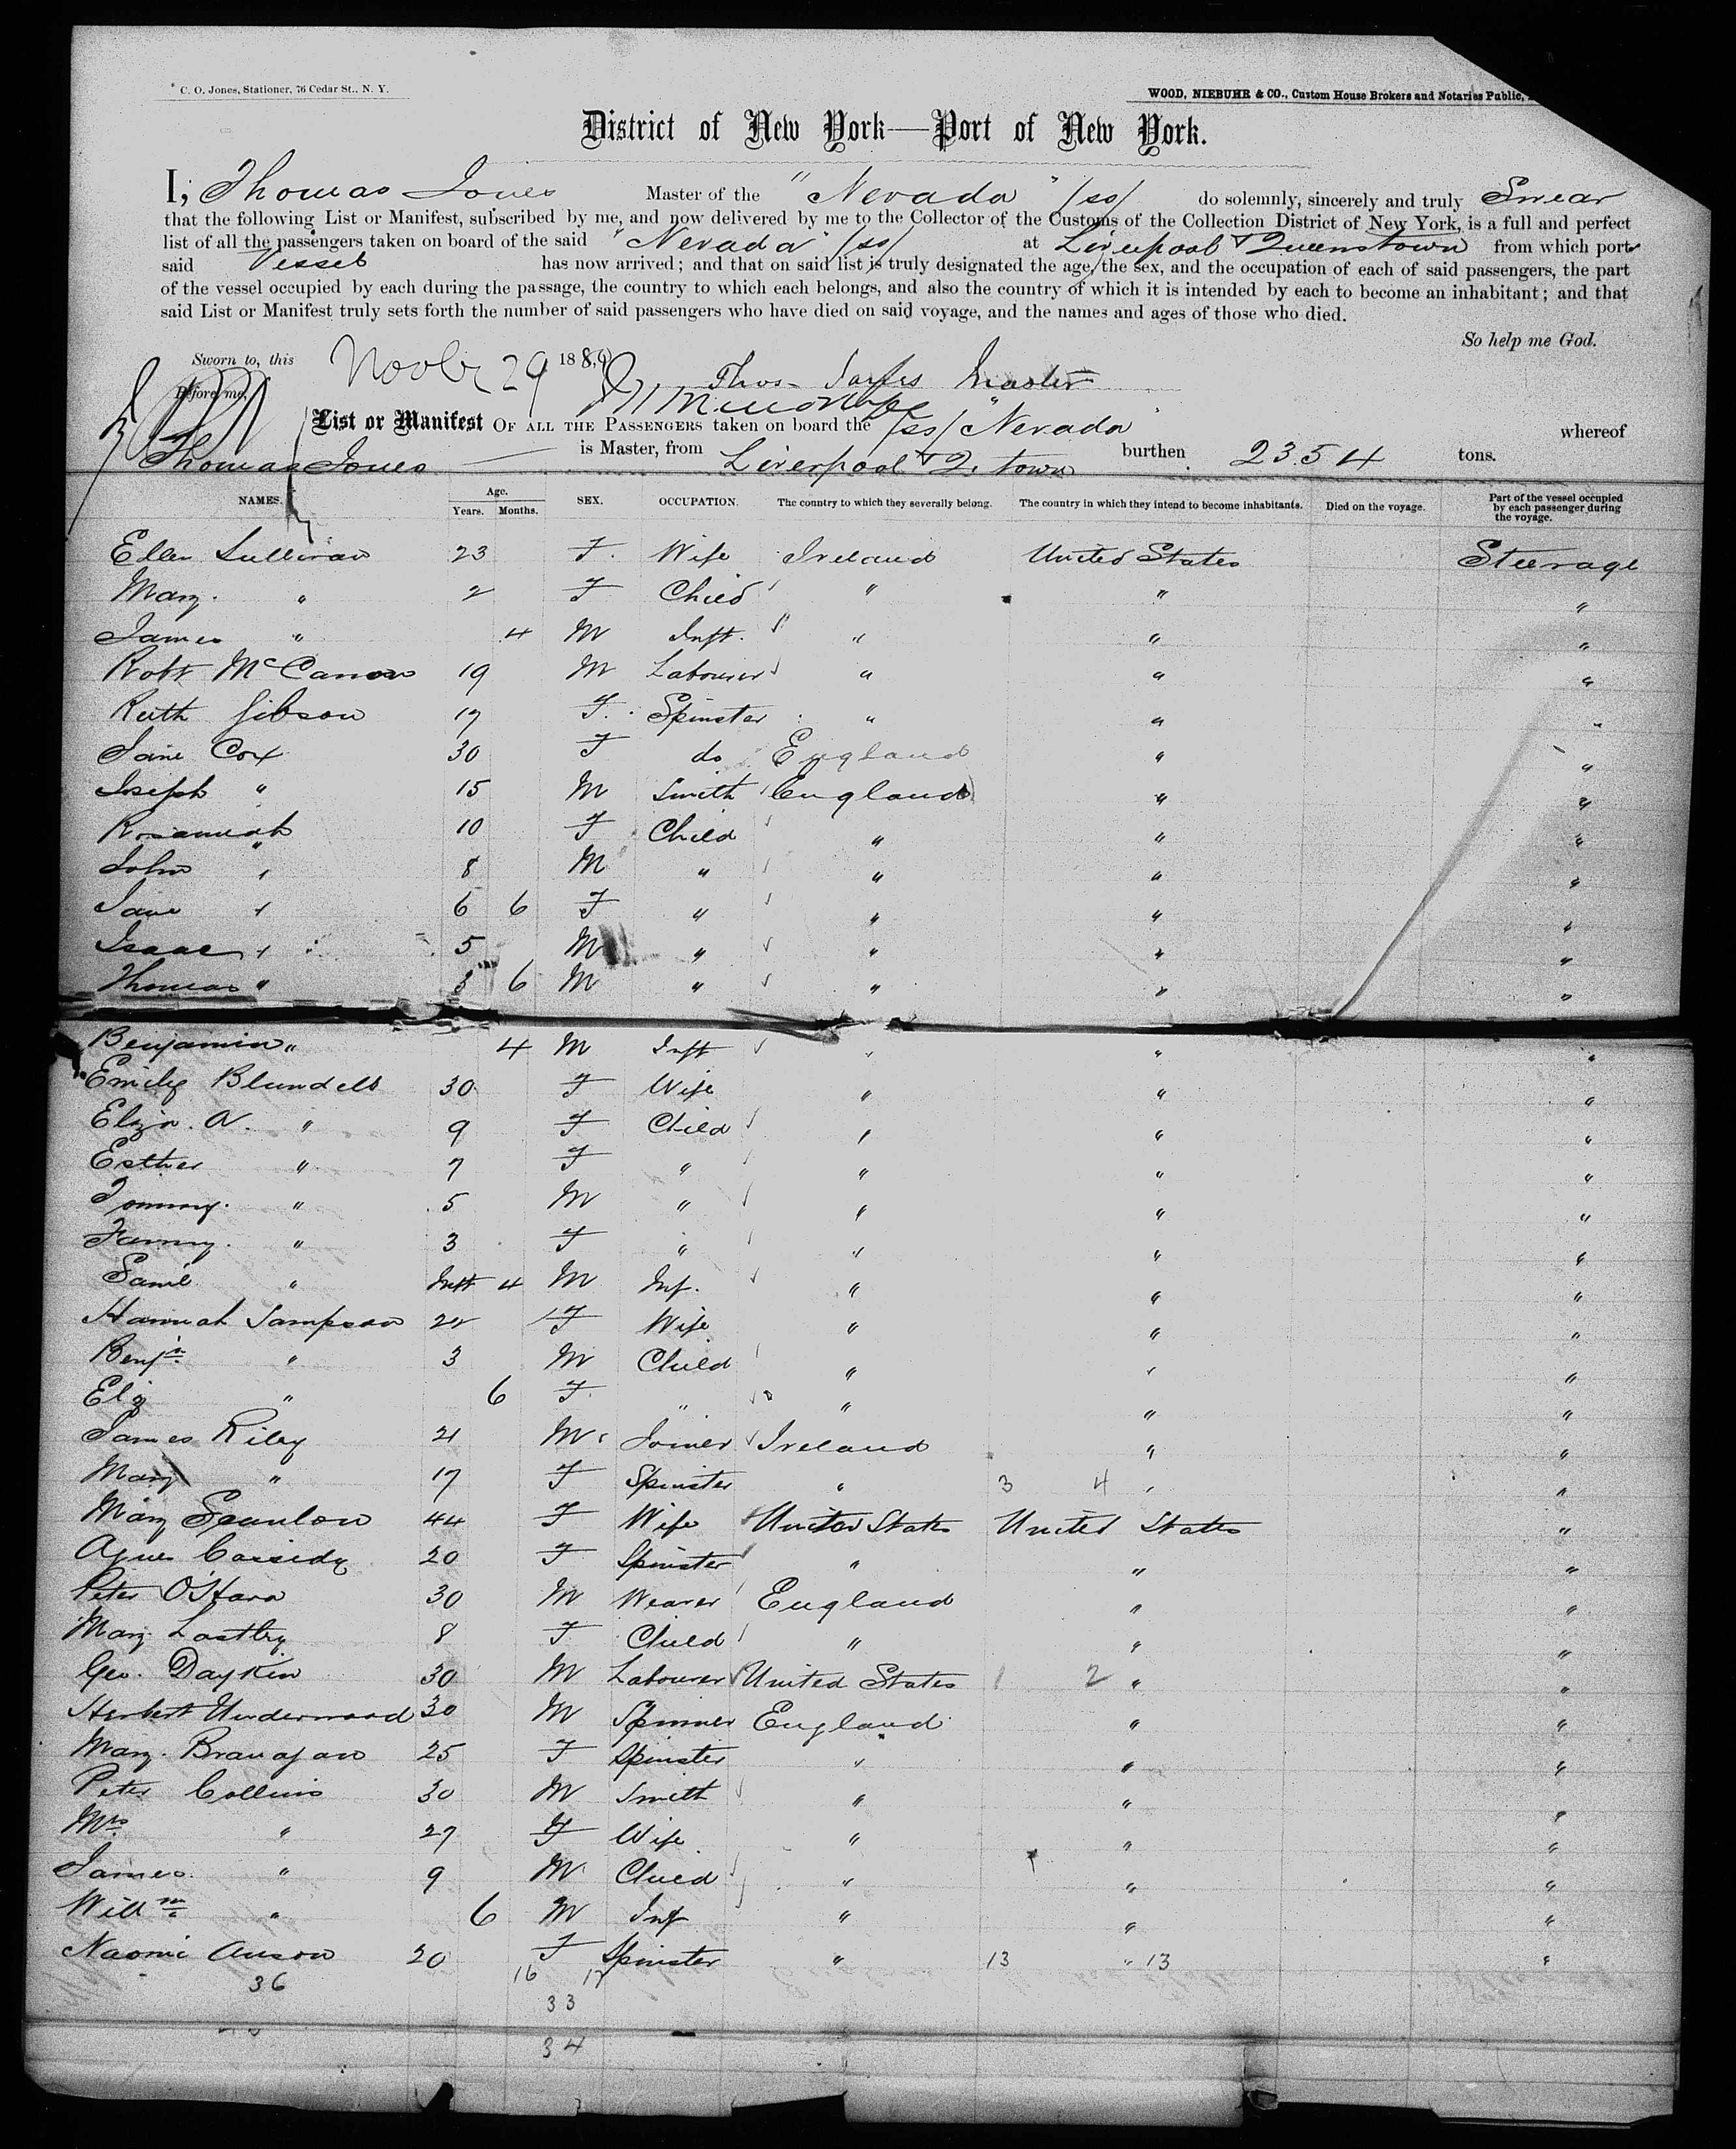 C. O. Jones, Stationer, 76 Cedar St., N. Y.
WOOD, NIEBUHR & CO., Custom House Brokers and Notaries Public,
District of New York—Port of New York.
I, Thomas Jones Master of the "Nevada" /ss/ do solemnly, sincerely and truly Swear
that the following List or Manifest, subscribed by me, and now delivered by me to the Collector of the Customs of the Collection District of New York, is a full and perfect
list of all the passengers taken on board of the said "Nevada" /ss/ at Liverpool & Queenstown from which ports
said Vessel has now arrived; and that on said list is truly designated the age, the sex, and the occupation of each of said passengers, the part
of the vessel occupied by each during the passage, the country to which each belongs, and also the country of which it is intended by each to become an inhabitant; and that
said List or Manifest truly sets forth the number of said passengers who have died on said voyage, and the names and ages of those who died.
So help me God.
Sworn to, this Novbr 29 188
Before me, Thos Jones Master
List or Manifest OF ALL THE PASSENGERS taken on board the /ss/ "Nevada" whereof
Thomas Jones is Master, from Liverpool & Q. town burthen 2354 tons.
NAMES. Age. Years. Months. SEX. OCCUPATION. The country to which they severally belong. The country in which they intend to become inhabitants. Died on the voyage. Part of the vessel occupied by each passenger during the voyage.
Ellen Sullivan 23 F. Wife Ireland United States Steerage
Mary " 2 F Child " " "
James " 4 M Inft. " " "
Robt McCanon 19 M Labourer " " "
Ruth Gibson 17 F. Spinster " " "
Jane Cox 30 F do England " "
Joseph " 15 M Smith England " "
Rosannah " 10 F Child " " "
John " 8 M " " " "
Jane " 6 6 F " " " "
Isaac " 5 M " " " "
Thomas " 3 6 M " " " "
Benjamin " 4 M Inft " " "
Emily Blundell 30 F Wife " " "
Eliza. A. " 9 F Child " " "
Esther " 7 F " " " "
Tommy. " 5 M " " " "
Fanny. " 3 F " " " "
Saml " Inft 4 M Inf. " " "
Hannah Sampson 22 F Wife " " "
Benjn " 3 M Child " " "
Eliz " 6 F. " " " "
James Riley 21 M Joiner Ireland " "
Mary " 17 F Spinster " 3 4 " "
Mary Scanlon 44 F Wife United States United States "
Agnes Cassidy 20 F Spinster " " "
Peter O'Hara 30 M Weaver England " "
Mary Lastley 8 F Child " " "
Geo. Daykin 30 M Labourer United States 1 2 " "
Herbert Underwood 30 M Spinner England " "
Mary. Branagan 25 F Spinster " " "
Peter Collins 30 M Smith " " "
Mrs " 27 F Wife " " "
James. " 9 M Child " " "
Willm " 6 M Inf " " "
Naomi Anson 20 F Spinster " 13 " 13 "
36 16 17
33
34